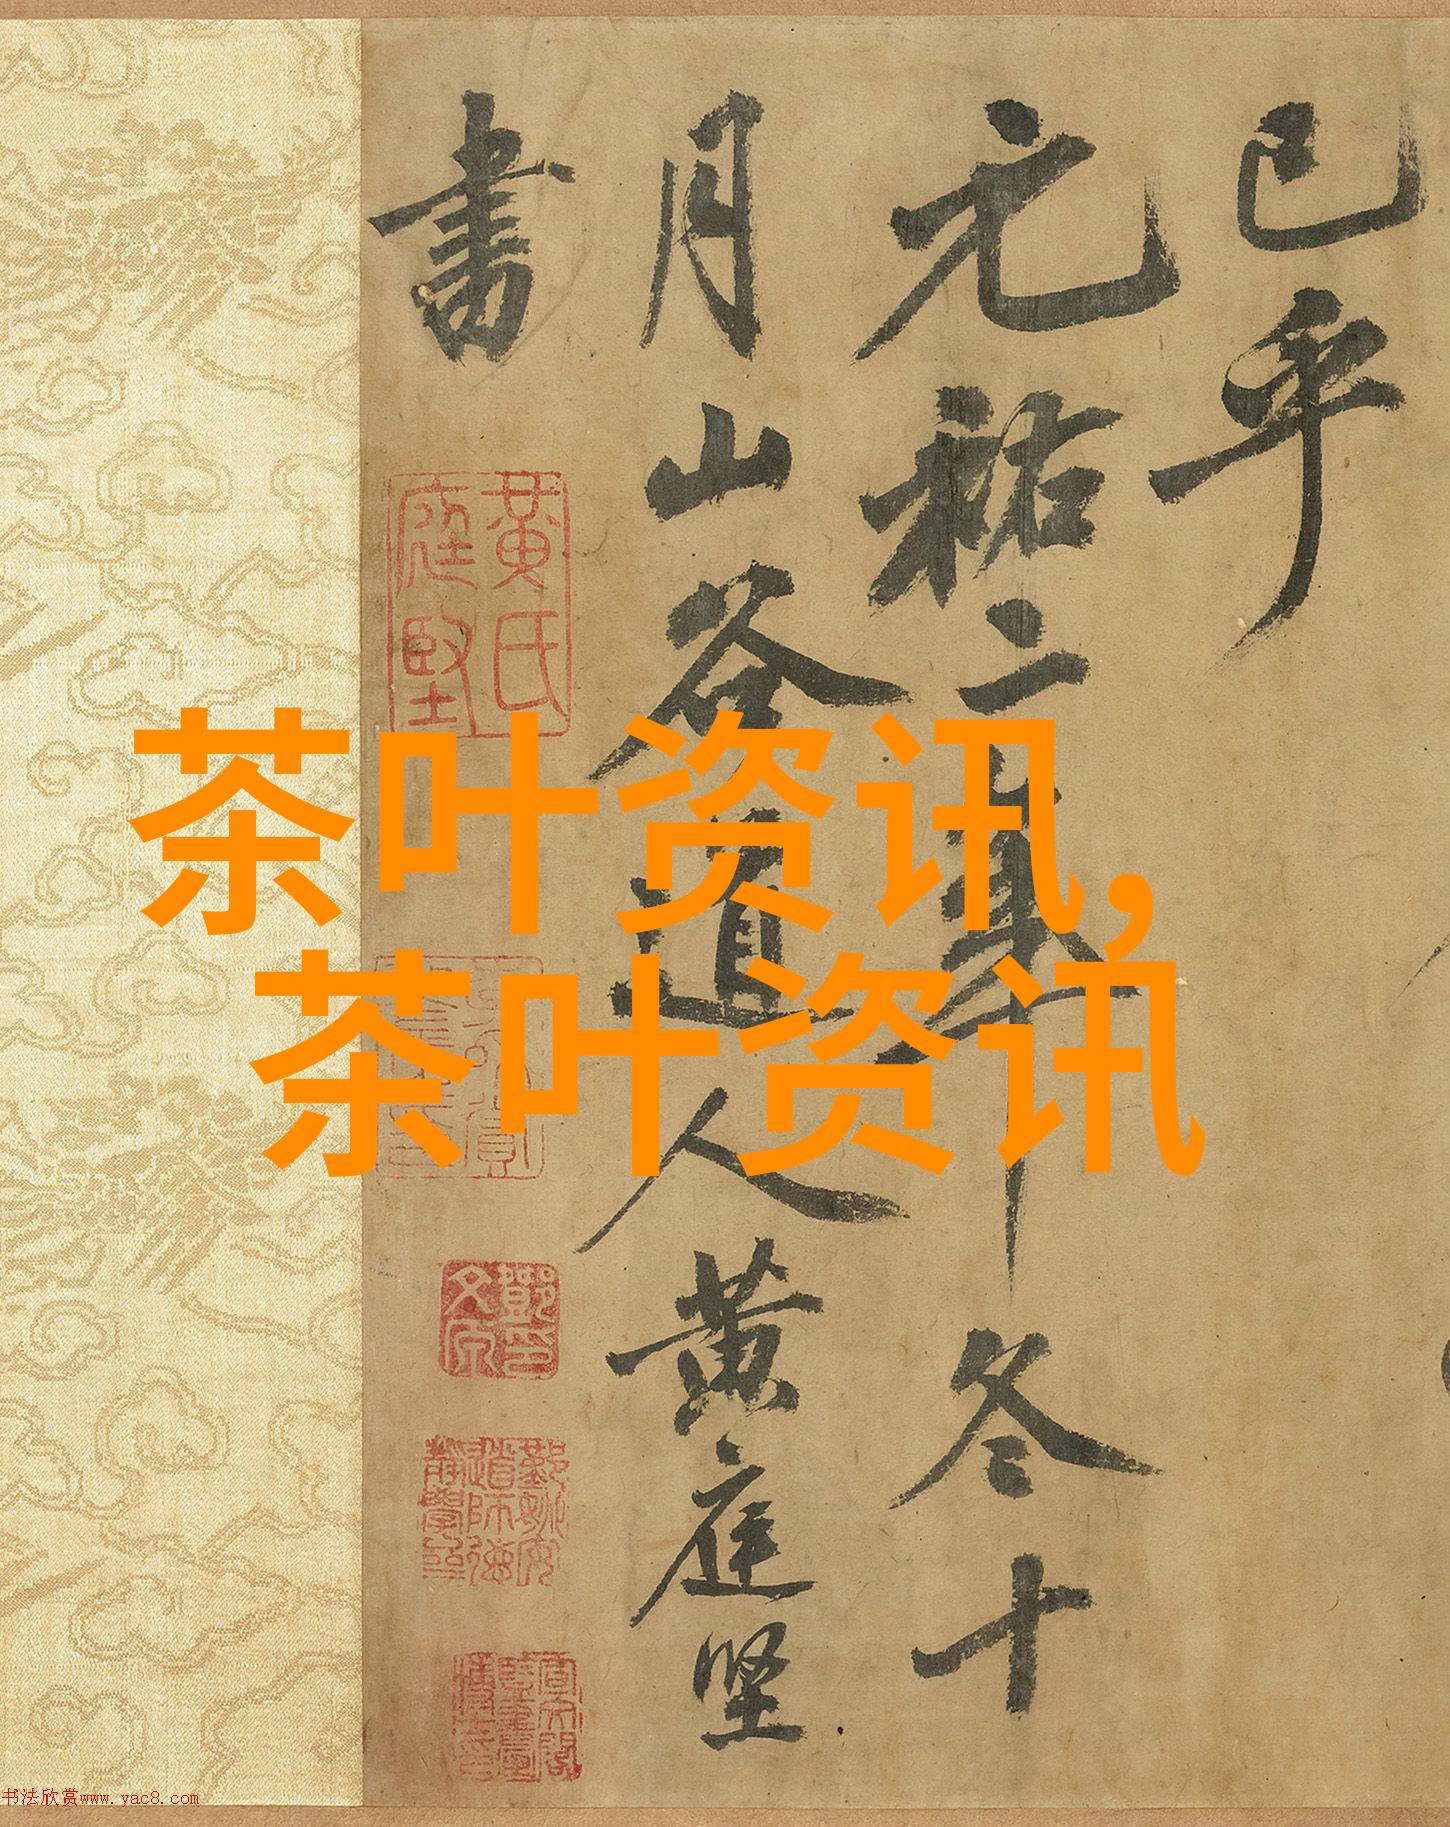 已乎
元祐二年冬十
月山谷道人黄庭坚
書
黄氏
庭堅
茶叶资讯,
茶叶资讯
书法欣赏www.yac8.com